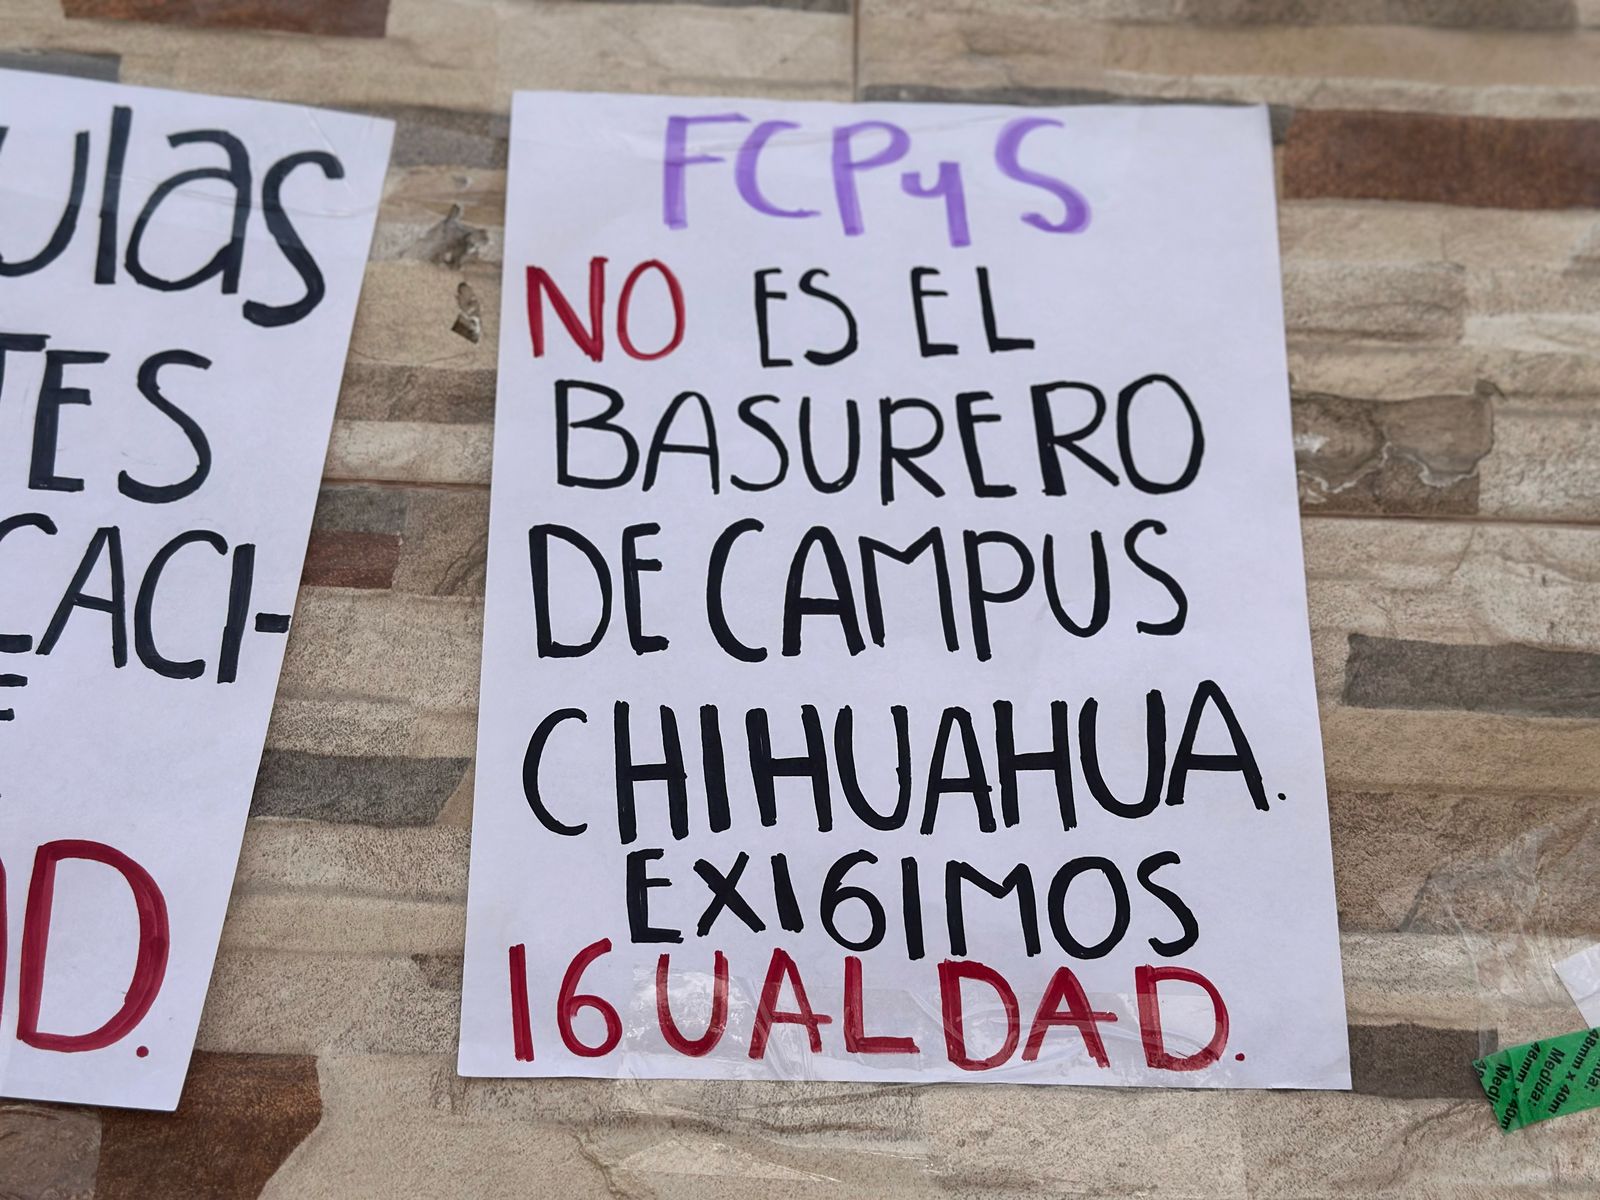 ulas
TES
CACI-
E
D.
FCPyS
NO ES EL
BASURERO
DE CAMPUS
CHIHUAHUA.
EXIGIMOS
IGUALDAD.
48mm x 40m
Medida: